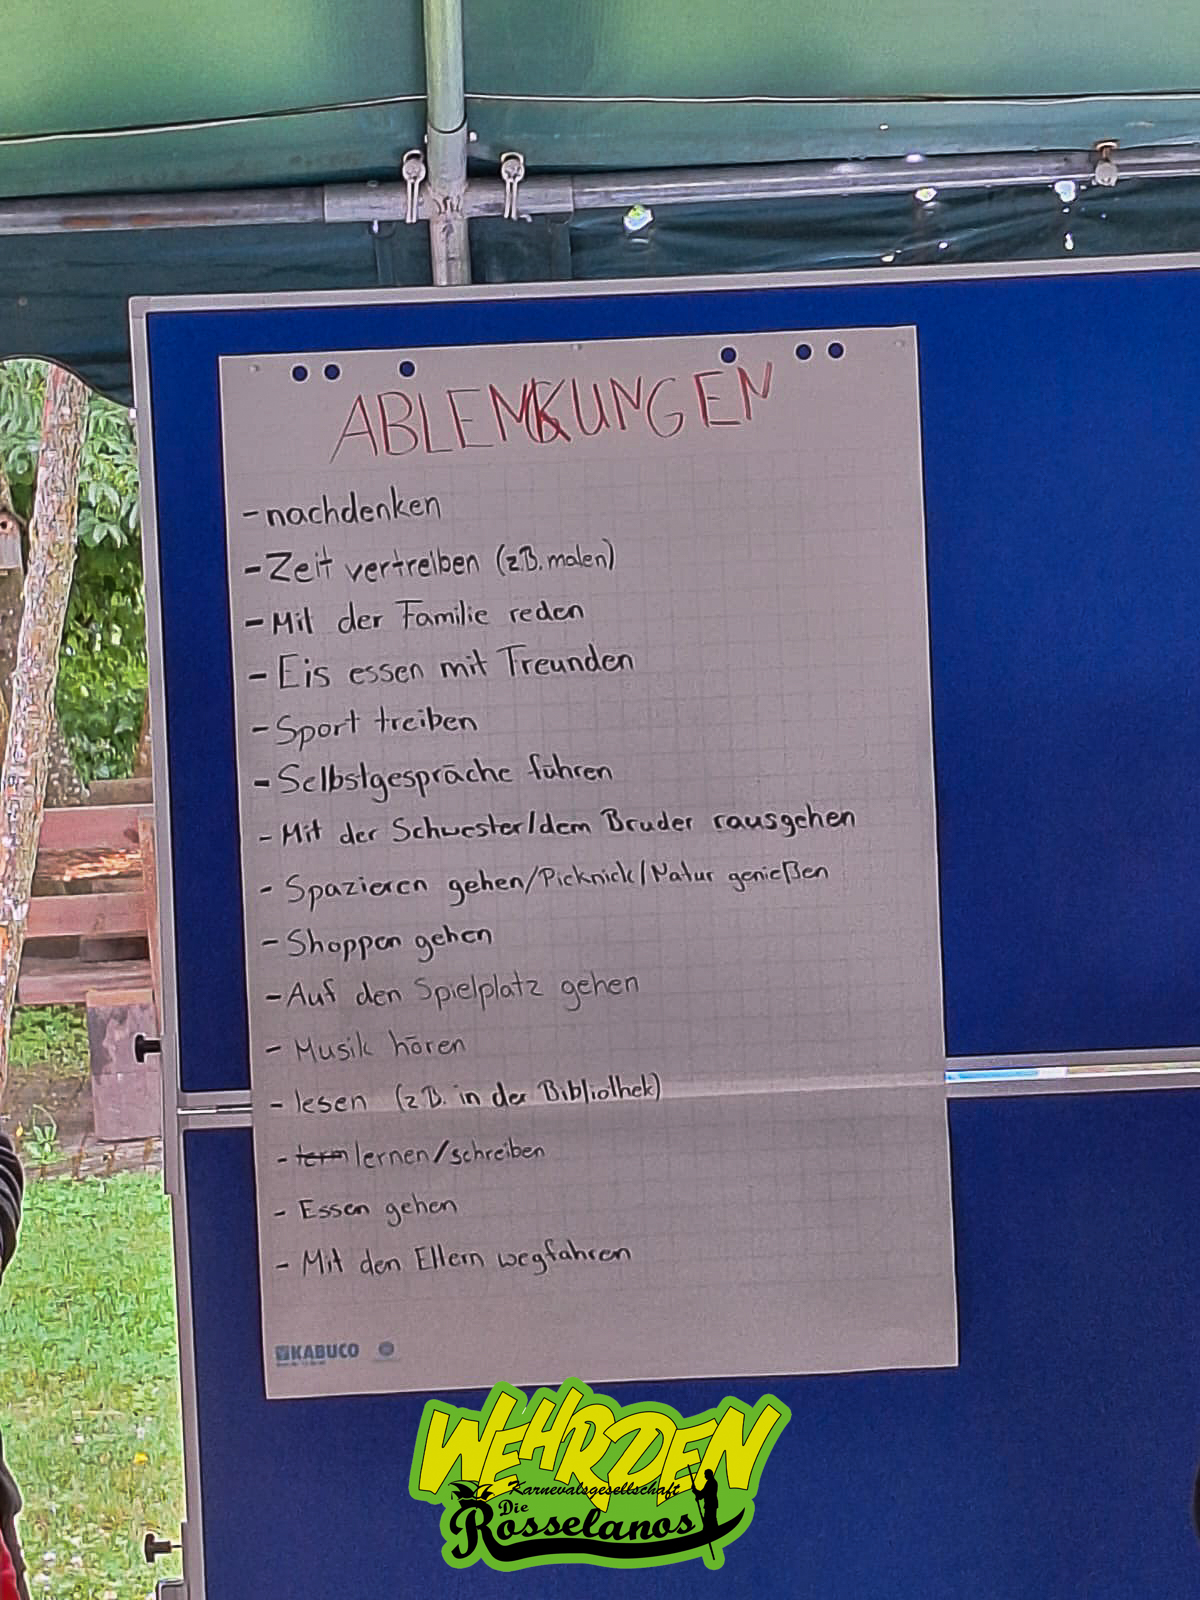 ABLENKUNGEN
- nachdenken
- Zeit vertreiben (z.B. malen)
- Mit der Familie reden
- Eis essen mit Freunden
- Sport treiben
- Selbstgespräche führen
- Mit der Schwester/dem Bruder rausgehen
- Spazieren gehen/Picknick/Natur genießen
- Shoppen gehen
- Auf den Spielplatz gehen
- Musik hören
- lesen (z.B. in der Bibliothek)
- lernen/schreiben
- Essen gehen
- Mit den Eltern wegfahren
KABUCO
WEHRDEN
Karnevalsgesellschaft
Die
Rosselanos